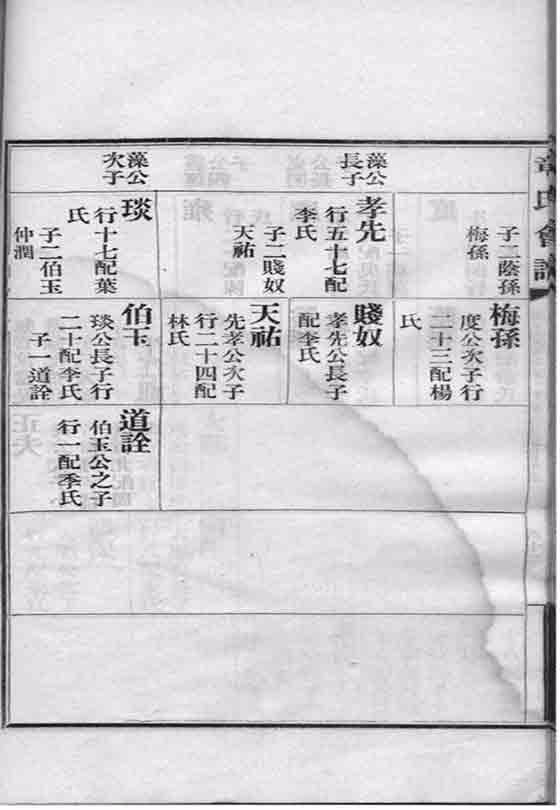 章氏會譜
子二蔭孫
梅孫
藻公
長子
孝先
行五十七配
李氏
子二賤奴
天祐
藻公
次子
琰
行十七配葉
氏
子二伯玉
仲潤
梅孫
度公次子行
二十三配楊
氏
賤奴
孝先公長子
配李氏
天祐
先孝公次子
行二十四配
林氏
伯玉
琰公長子行
二十配季氏
子一道詮
道詮
伯玉公之子
行一配季氏